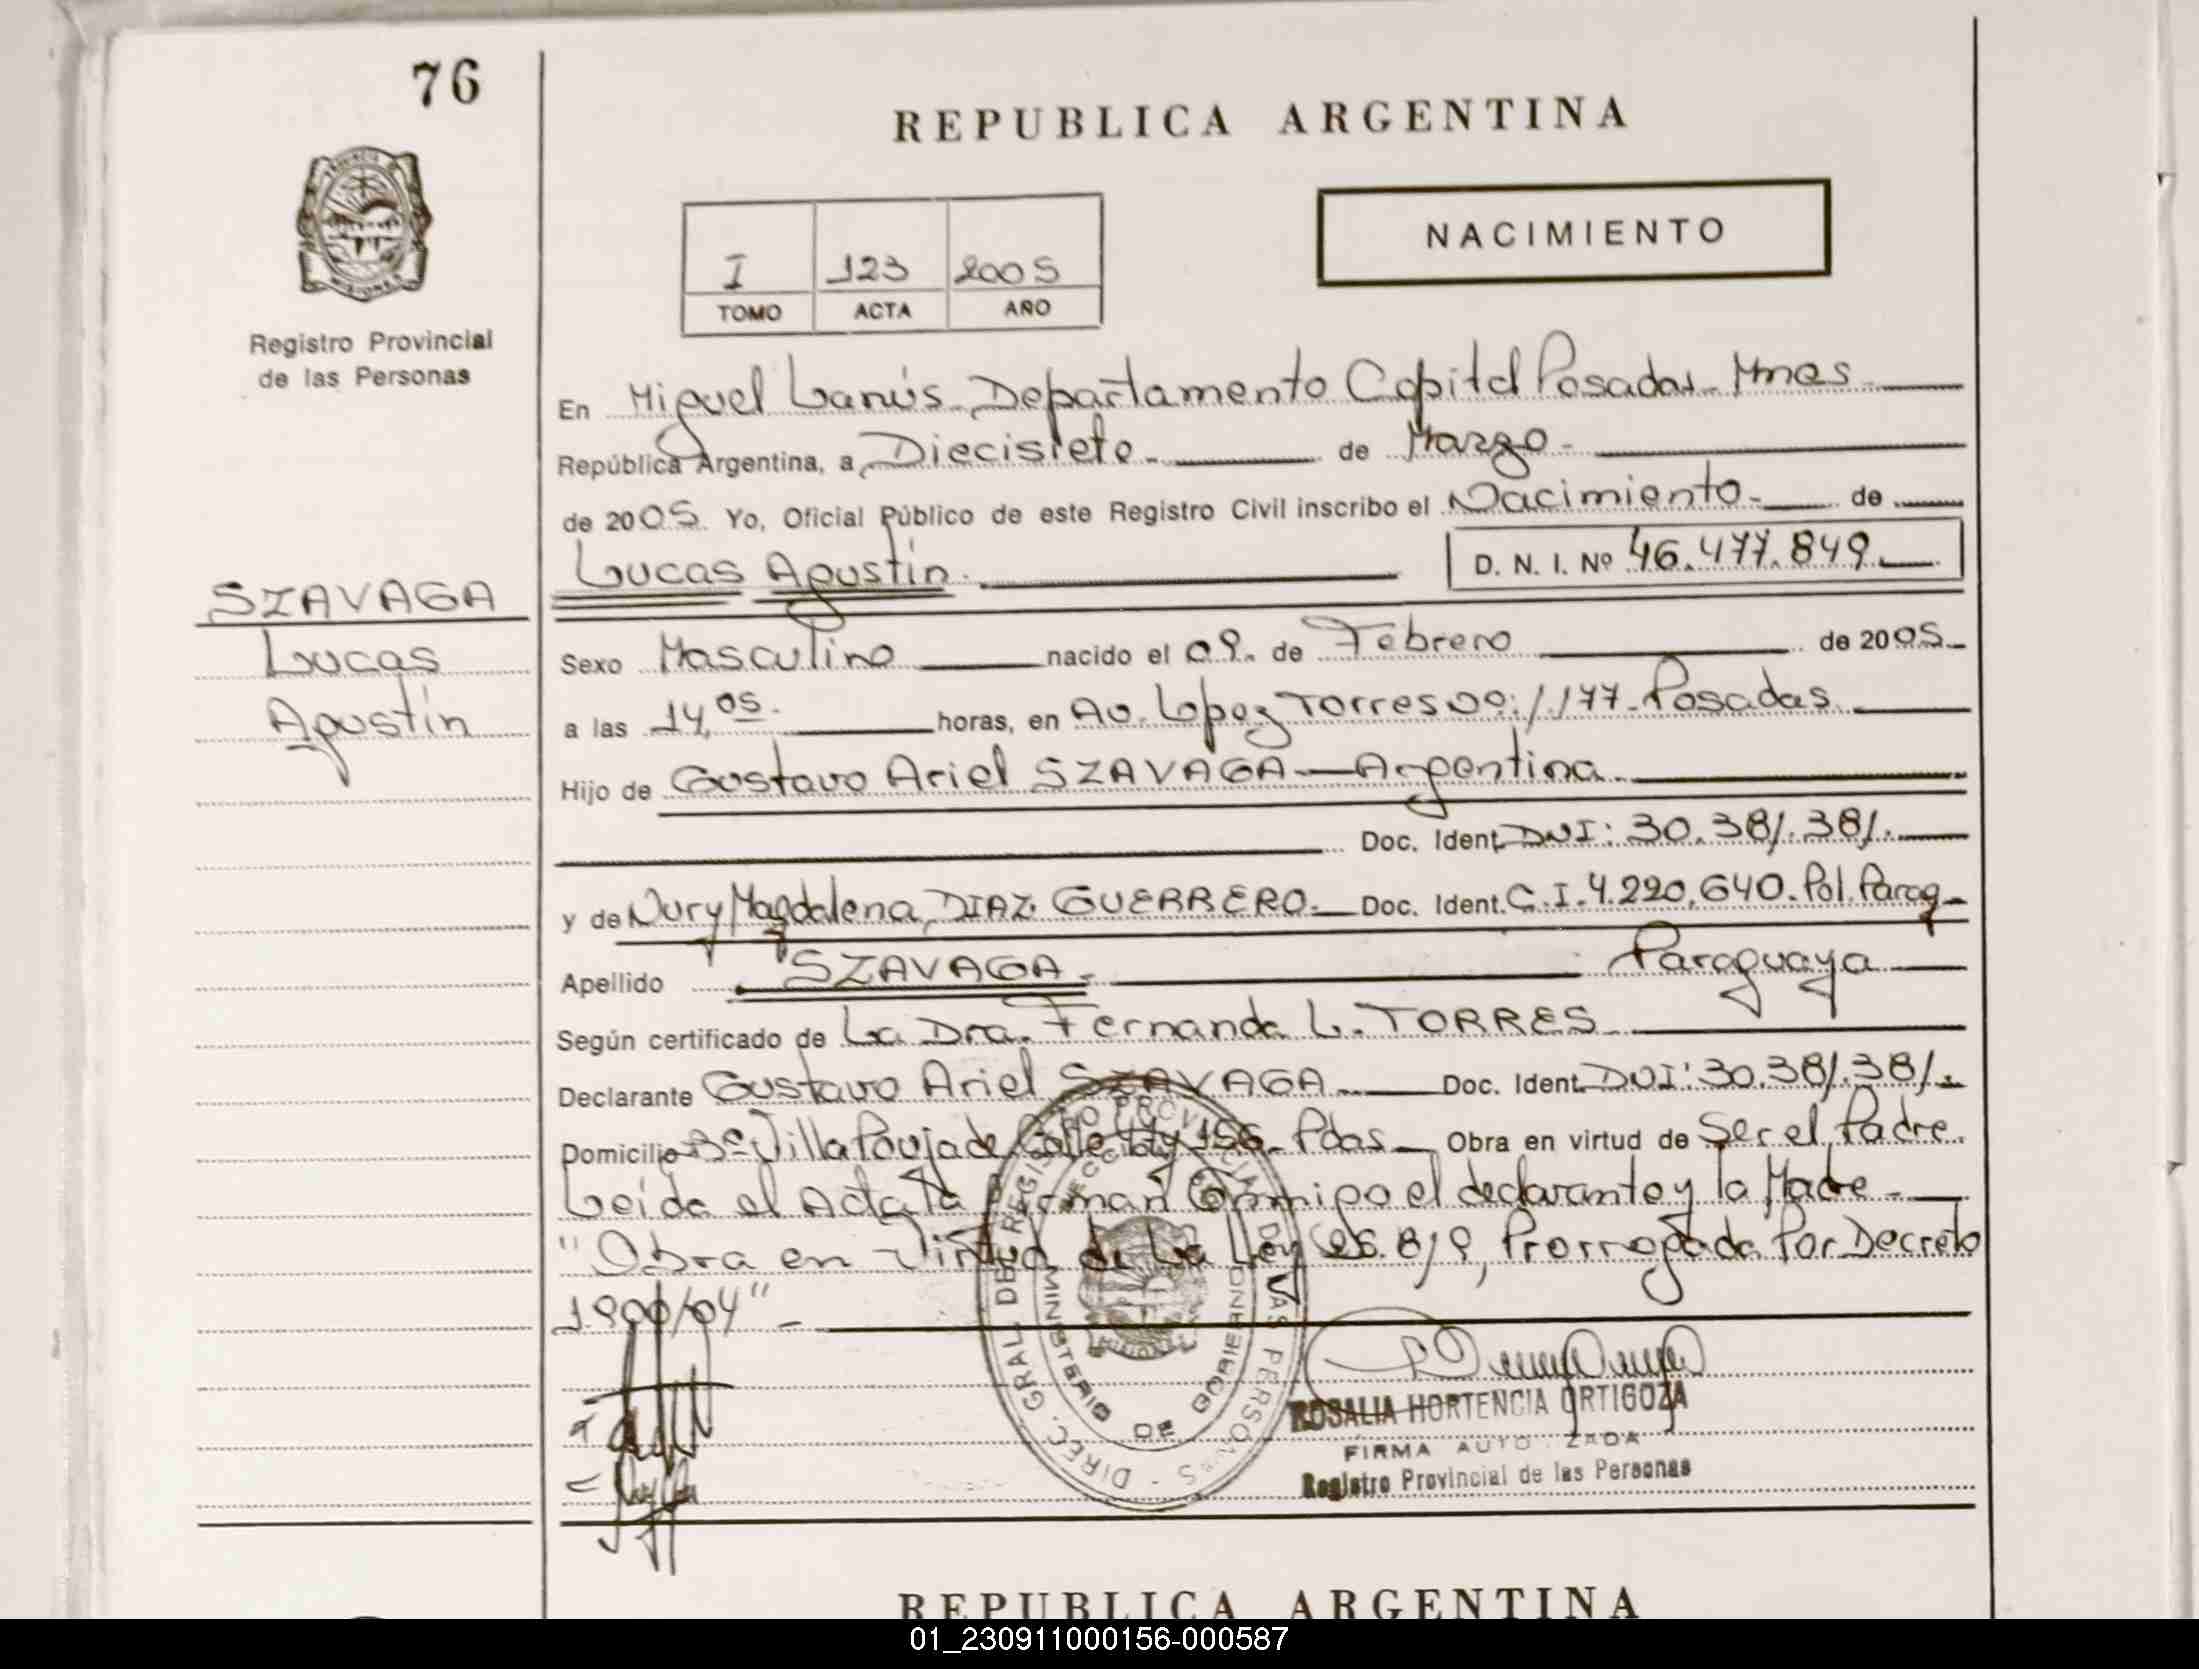 76
REPUBLICA ARGENTINA
NACIMIENTO
I 123 2005
TOMO ACTA AÑO
Registro Provincial
de las Personas
En Miguel Lanús - Departamento Capital Posadas - Mnes
República Argentina, a Diecisiete - de Marzo -
de 2005. Yo, Oficial Público de este Registro Civil inscribo el Nacimiento - de
Lucas Agustín. D. N. I. Nº 46.477.849
SZAVAGA
Lucas
Agustín
Sexo Masculino nacido el 09. de Febrero de 2005.-
a las 14,05. horas, en Av. Lopez Torres Nº: 1.177 - Posadas
Hijo de Gustavo Ariel SZAVAGA - Argentina
Doc. Ident. DNI: 30.381.381.
y de Nury Magdalena, DIAZ GUERRERO. Doc. Ident. C.I. 4.220.640. Pol. Parag -
Apellido SZAVAGA. Paraguaya
Según certificado de La Dra. Fernanda L. TORRES
Declarante Gustavo Ariel SZAVAGA Doc. Ident. DNI: 30.381.381.
Domicilio Bº Villa Poujade Calle 156 - Pdas Obra en virtud de Ser el Padre.
Leida el Acta la Firman Conmigo el declarante y la Madre -
"Obra en Virtud de La Ley 25.819, Prorrogada Por Decreto
1.900/04" -
DIREC. GRAL. DEL REGISTRO PROVINCIAL DE LAS PERSONAS
MINISTERIO DE GOBIERNO
ROSALIA HORTENCIA ORTIGOZA
FIRMA AUTORIZADA
Registro Provincial de las Personas
REPUBLICA ARGENTINA
01_230911000156-000587